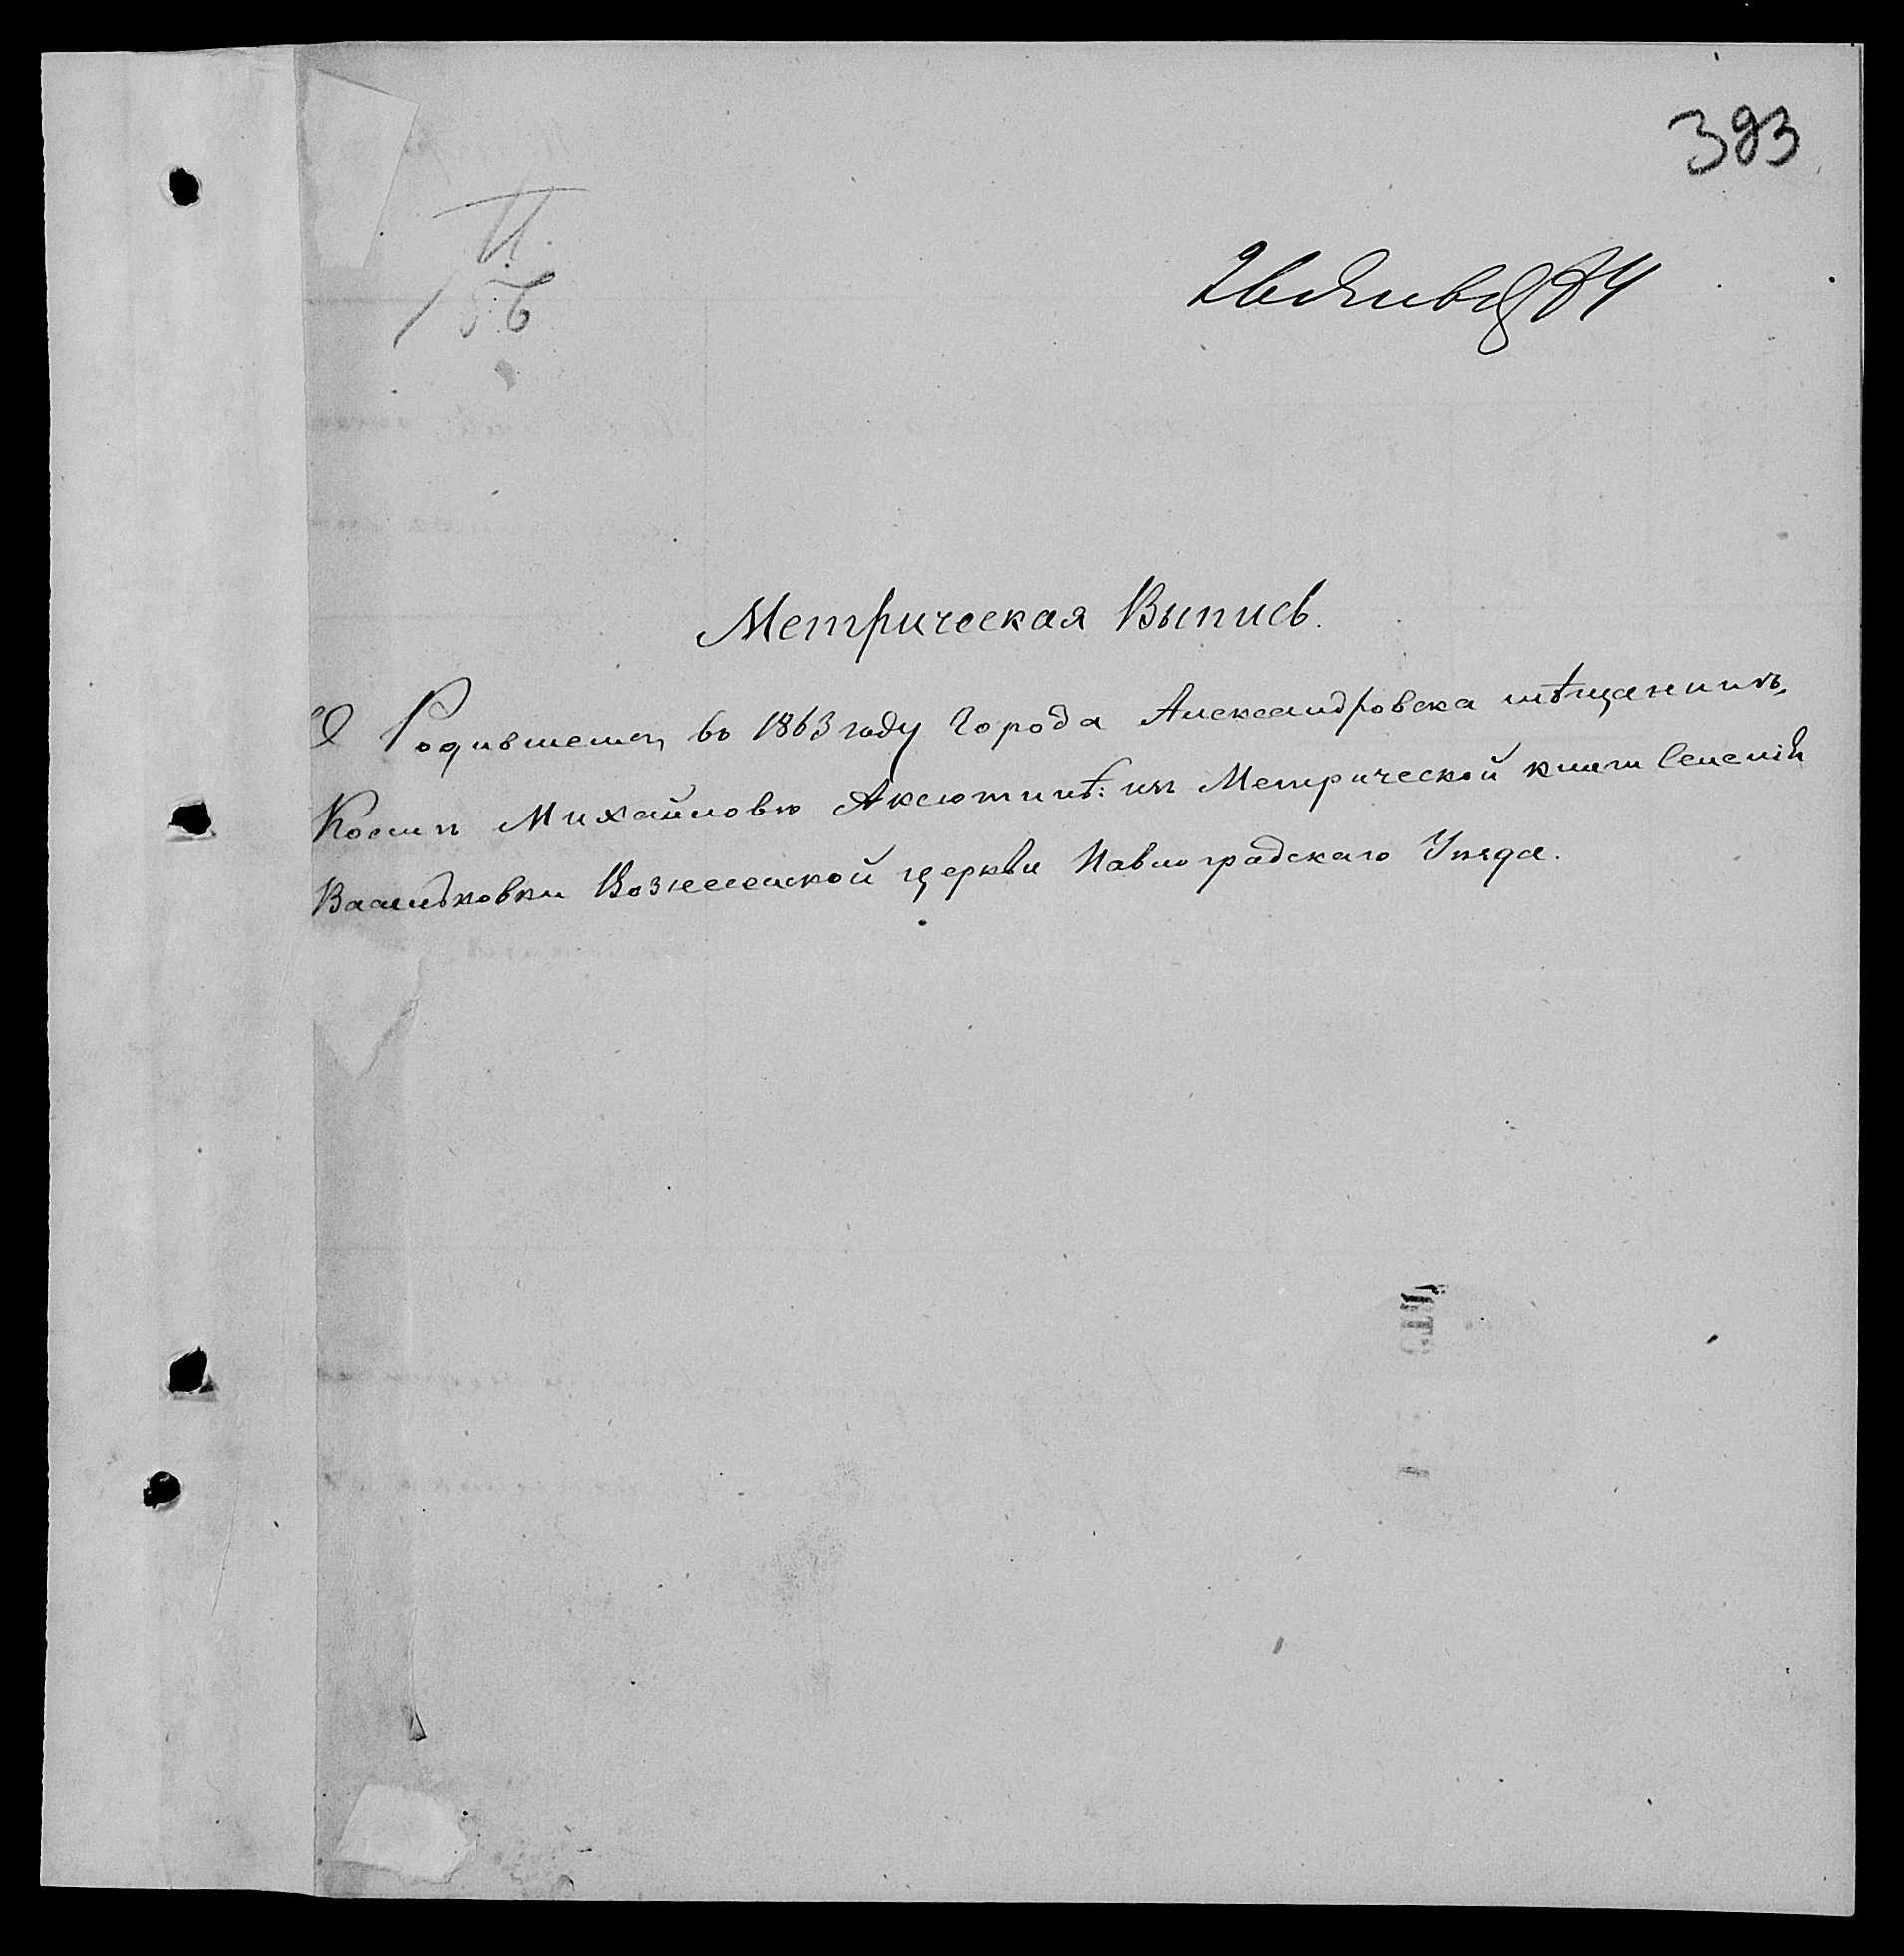 393
26 Янв 84
Метрическая Выпись.
О Родившемся въ 1863 году Города Александровска мѣщанинѣ,
Косьмѣ Михайловѣ Аксютинѣ: изъ Метрической книги Селенія
Васильковки Вознесенской церкви Павлоградскаго Уѣзда.